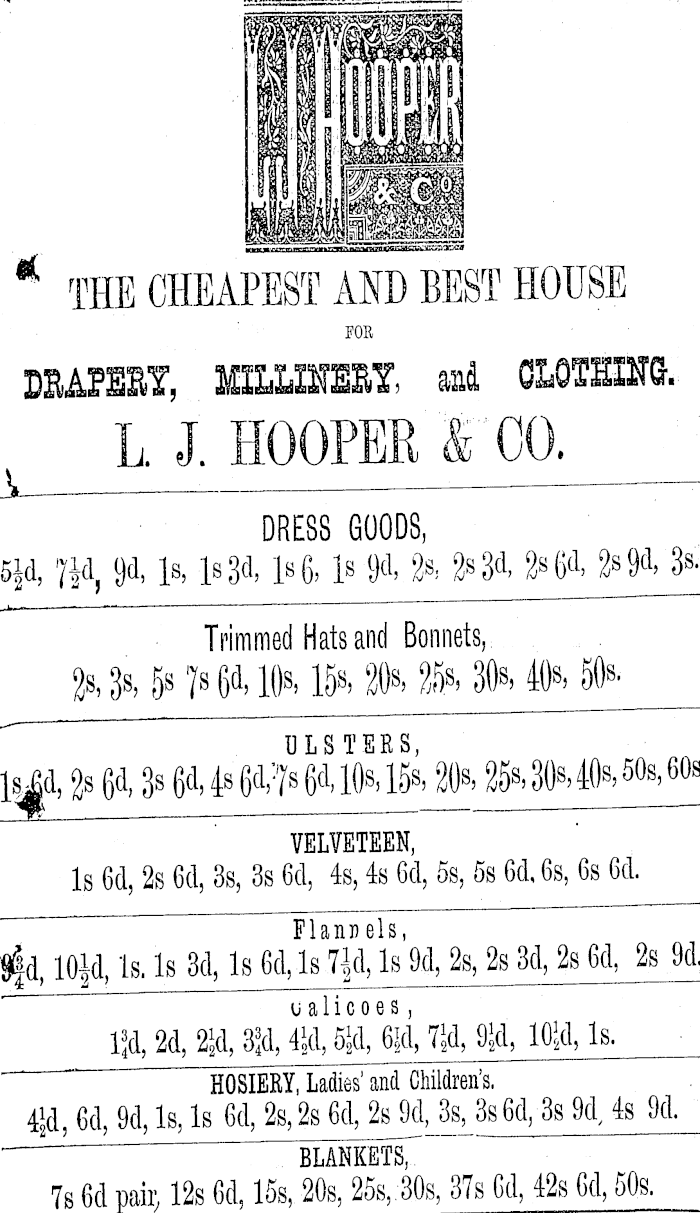 L J HOOPER
& Co
THE CHEAPEST AND BEST HOUSE
FOR
DRAPERY, MILLINERY, and CLOTHING.
L. J. HOOPER & CO.
DRESS GOODS,
5½d, 7½d, 9d, 1s, 1s 3d, 1s 6, 1s 9d, 2s, 2s 3d, 2s 6d, 2s 9d, 3s.
Trimmed Hats and Bonnets,
2s, 3s, 5s 7s 6d, 10s, 15s, 20s, 25s, 30s, 40s, 50s.
ULSTERS,
1s 6d, 2s 6d, 3s 6d, 4s 6d, 7s 6d, 10s, 15s, 20s, 25s, 30s, 40s, 50s, 60s
VELVETEEN,
1s 6d, 2s 6d, 3s, 3s 6d, 4s, 4s 6d, 5s, 5s 6d. 6s, 6s 6d.
Flannels,
9¾d, 10½d, 1s. 1s 3d, 1s 6d, 1s 7½d, 1s 9d, 2s, 2s 3d, 2s 6d, 2s 9d.
Calicoes,
1¾d, 2d, 2½d, 3¾d, 4½d, 5½d, 6½d, 7½d, 9½d, 10½d, 1s.
HOSIERY, Ladies' and Children's.
4½d, 6d, 9d, 1s, 1s 6d, 2s, 2s 6d, 2s 9d, 3s, 3s 6d, 3s 9d, 4s 9d.
BLANKETS,
7s 6d pair, 12s 6d, 15s, 20s, 25s, 30s, 37s 6d, 42s 6d, 50s.